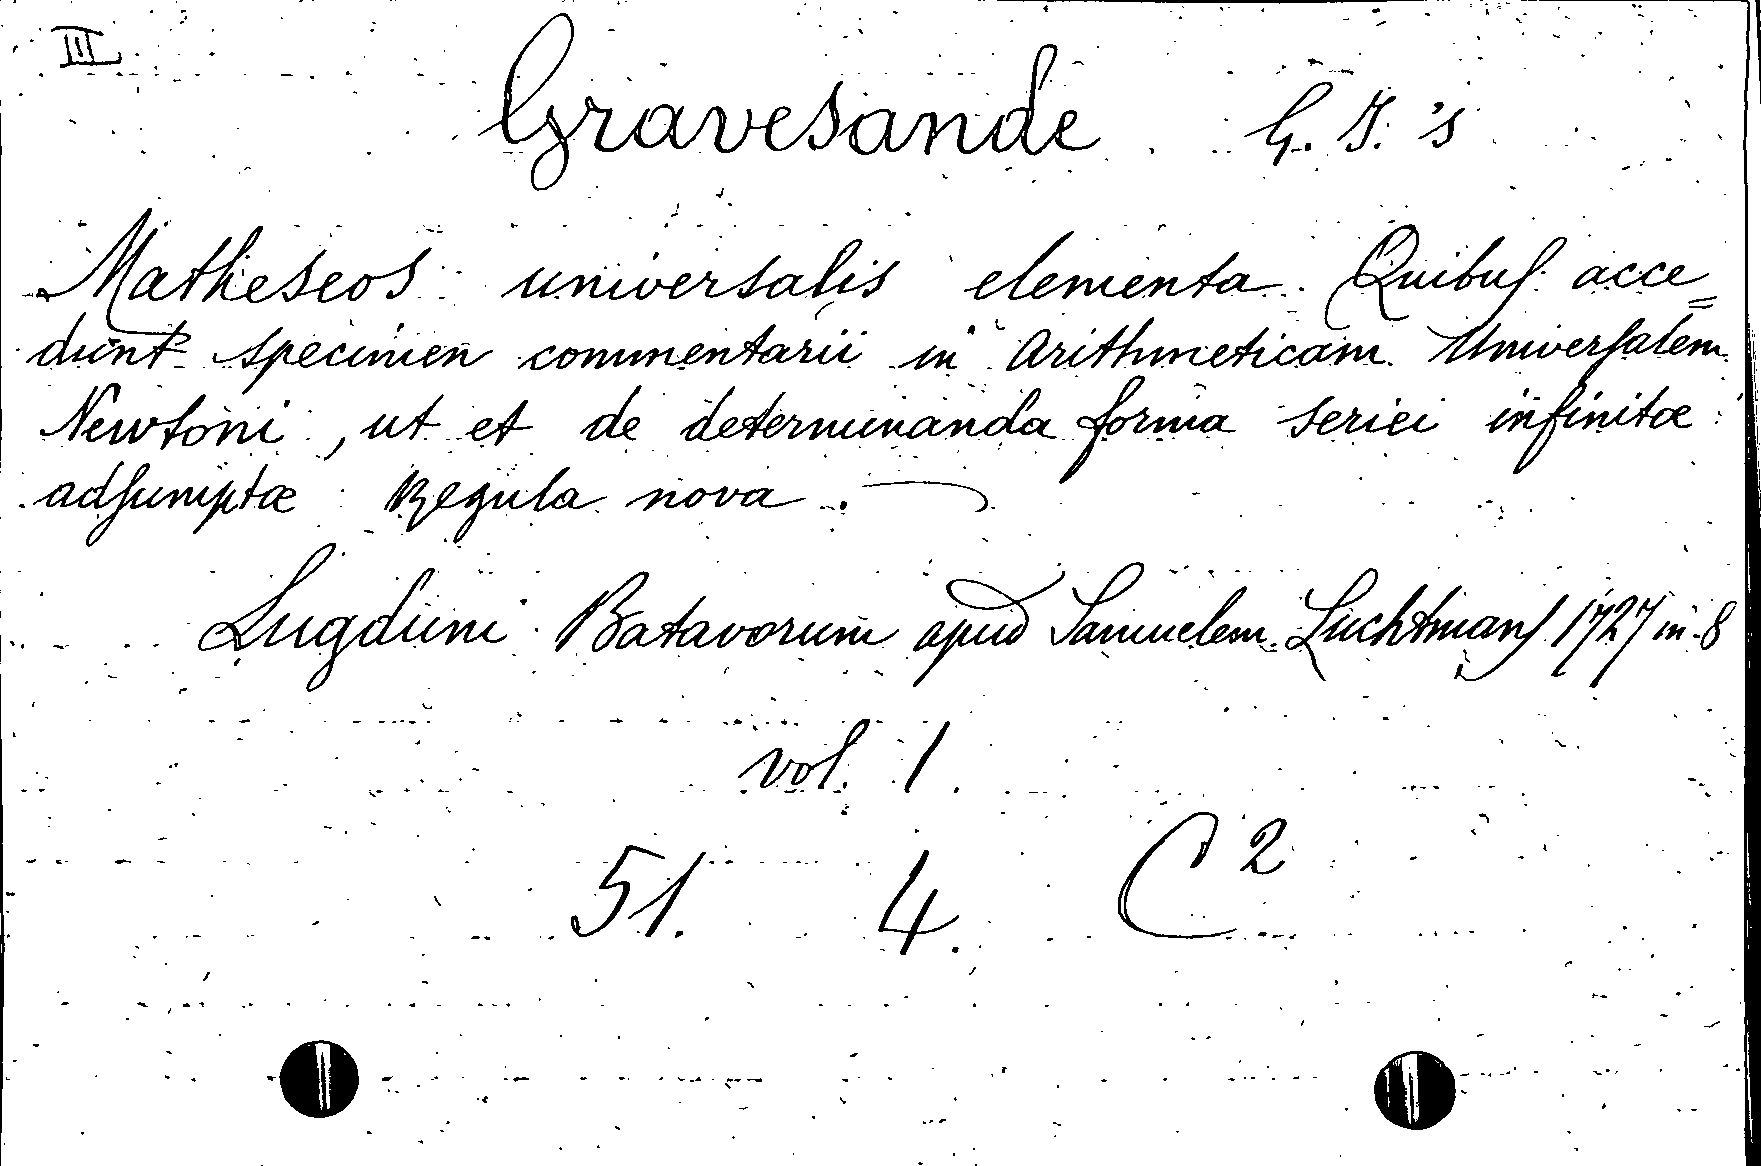 III
Gravesande G. J. 's
Matheseos universalis elementa. Quibus acce=
dunt specimen commentarii in Arithmeticam Universalem
Newtoni, ut et de determinanda forma seriei infinitæ
adsumptæ Regula nova.
Lugduni Batavorum apud Samuelem Luchtmans 1727 in 8
vol. 1.
51. 4. C²